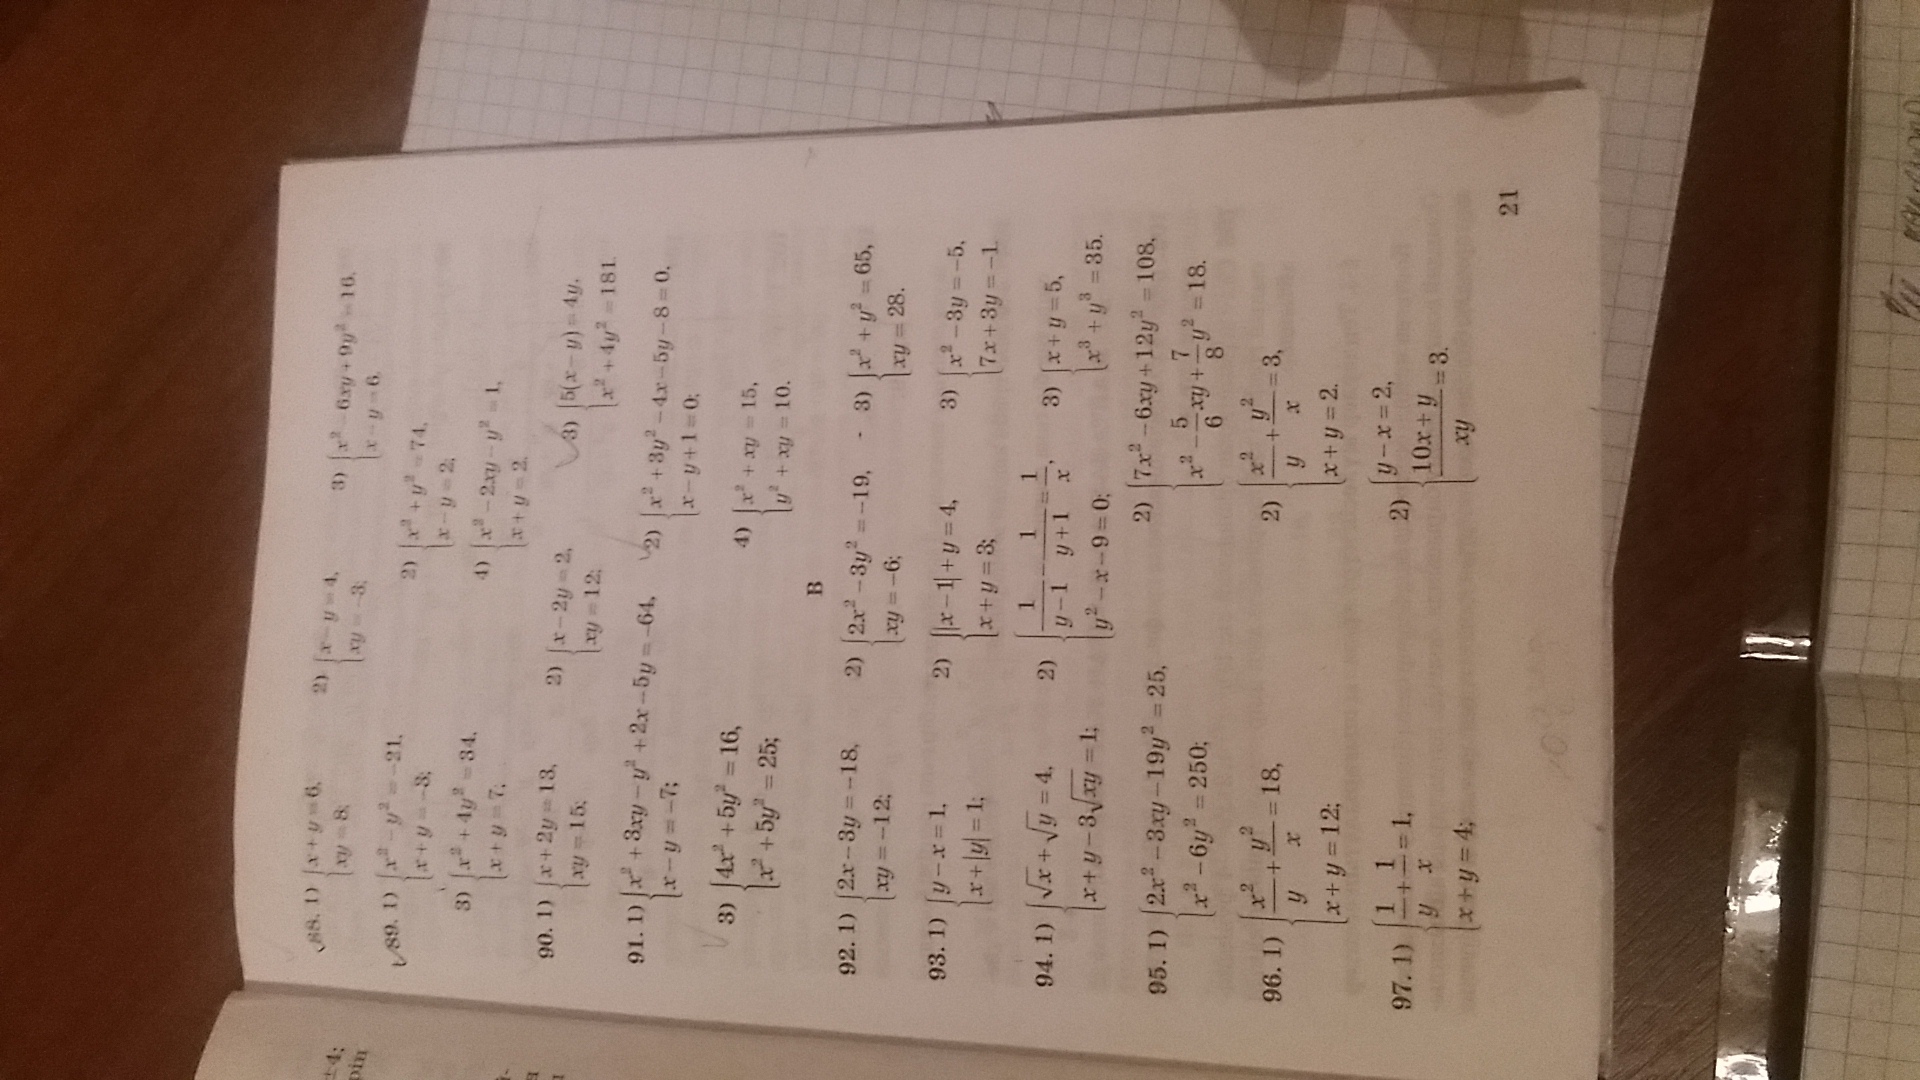 88. 1) { x + y = 6, xy = 8; 2) { x − y = 4, xy = −3; 3) { x² − 6xy + 9y² = 16, x − y = 6.
89. 1) { x² − y² = −21, x + y = −3; 2) { x² + y² = 74, x − y = 2;
3) { x² + 4y² = 34, x + y = 7; 4) { x² − 2xy − y² = 1, x + y = 2.
90. 1) { x + 2y = 13, xy = 15; 2) { x − 2y = 2, xy = 12; 3) { 5(x − y) = 4y, x² + 4y² = 181.
91. 1) { x² + 3xy − y² + 2x − 5y = −64, x − y = −7; 2) { x² + 3y² − 4x − 5y − 8 = 0, x − y + 1 = 0;
3) { 4x² + 5y² = 16, x² + 5y² = 25; 4) { x² + xy = 15, y² + xy = 10.
B
92. 1) { 2x − 3y = −18, xy = −12; 2) { 2x² − 3y² = −19, xy = −6; 3) { x² + y² = 65, xy = 28.
93. 1) { y − x = 1, x + |y| = 1; 2) { |x − 1| + y = 4, x + y = 3; 3) { x² − 3y = −5, 7x + 3y = −1.
94. 1) { √x + √y = 4, x + y − 3√xy = 1; 2) { 1/(y − 1) − 1/(y + 1) = 1/x, y² − x − 9 = 0; 3) { x + y = 5, x³ + y³ = 35.
95. 1) { 2x² − 3xy − 19y² = 25, x² − 6y² = 250; 2) { 7x² − 6xy + 12y² = 108, x² − 5/6 xy + 7/8 y² = 18.
96. 1) { x²/y + y²/x = 18, x + y = 12; 2) { x²/y + y²/x = 3, x + y = 2.
97. 1) { 1/y + 1/x = 1, x + y = 4; 2) { y − x = 2, (10x + y)/xy = 3.
21